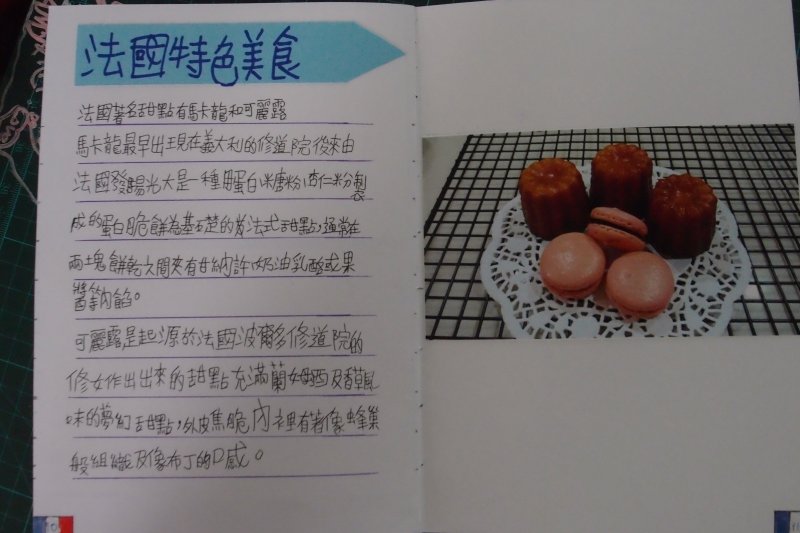 法國特色美食
法國著名甜點有馬卡龍和可麗露
馬卡龍最早出現在義大利的修道院後來由
法國發揚光大是一種用蛋白糖粉杏仁粉製
成的蛋白脆餅為基礎的法式甜點,通常在
兩塊餅乾之間夾有甘納許、奶油乳酪或果
醬等內餡。
可麗露是起源於法國波爾多修道院的
修女作出出來的甜點充滿蘭姆酒及香草風
味的夢幻甜點,外皮焦脆內裡有著像蜂巢
般組織及像布丁的口感。